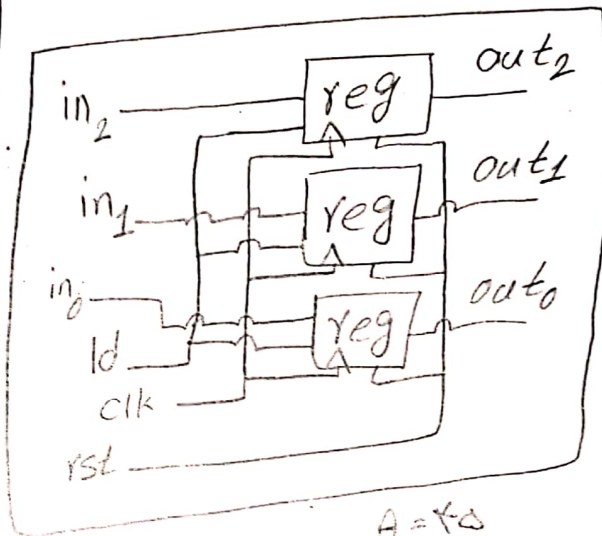 in₂ reg out₂
in₁ reg out₁
in₀ reg out₀
ld
clk
rst